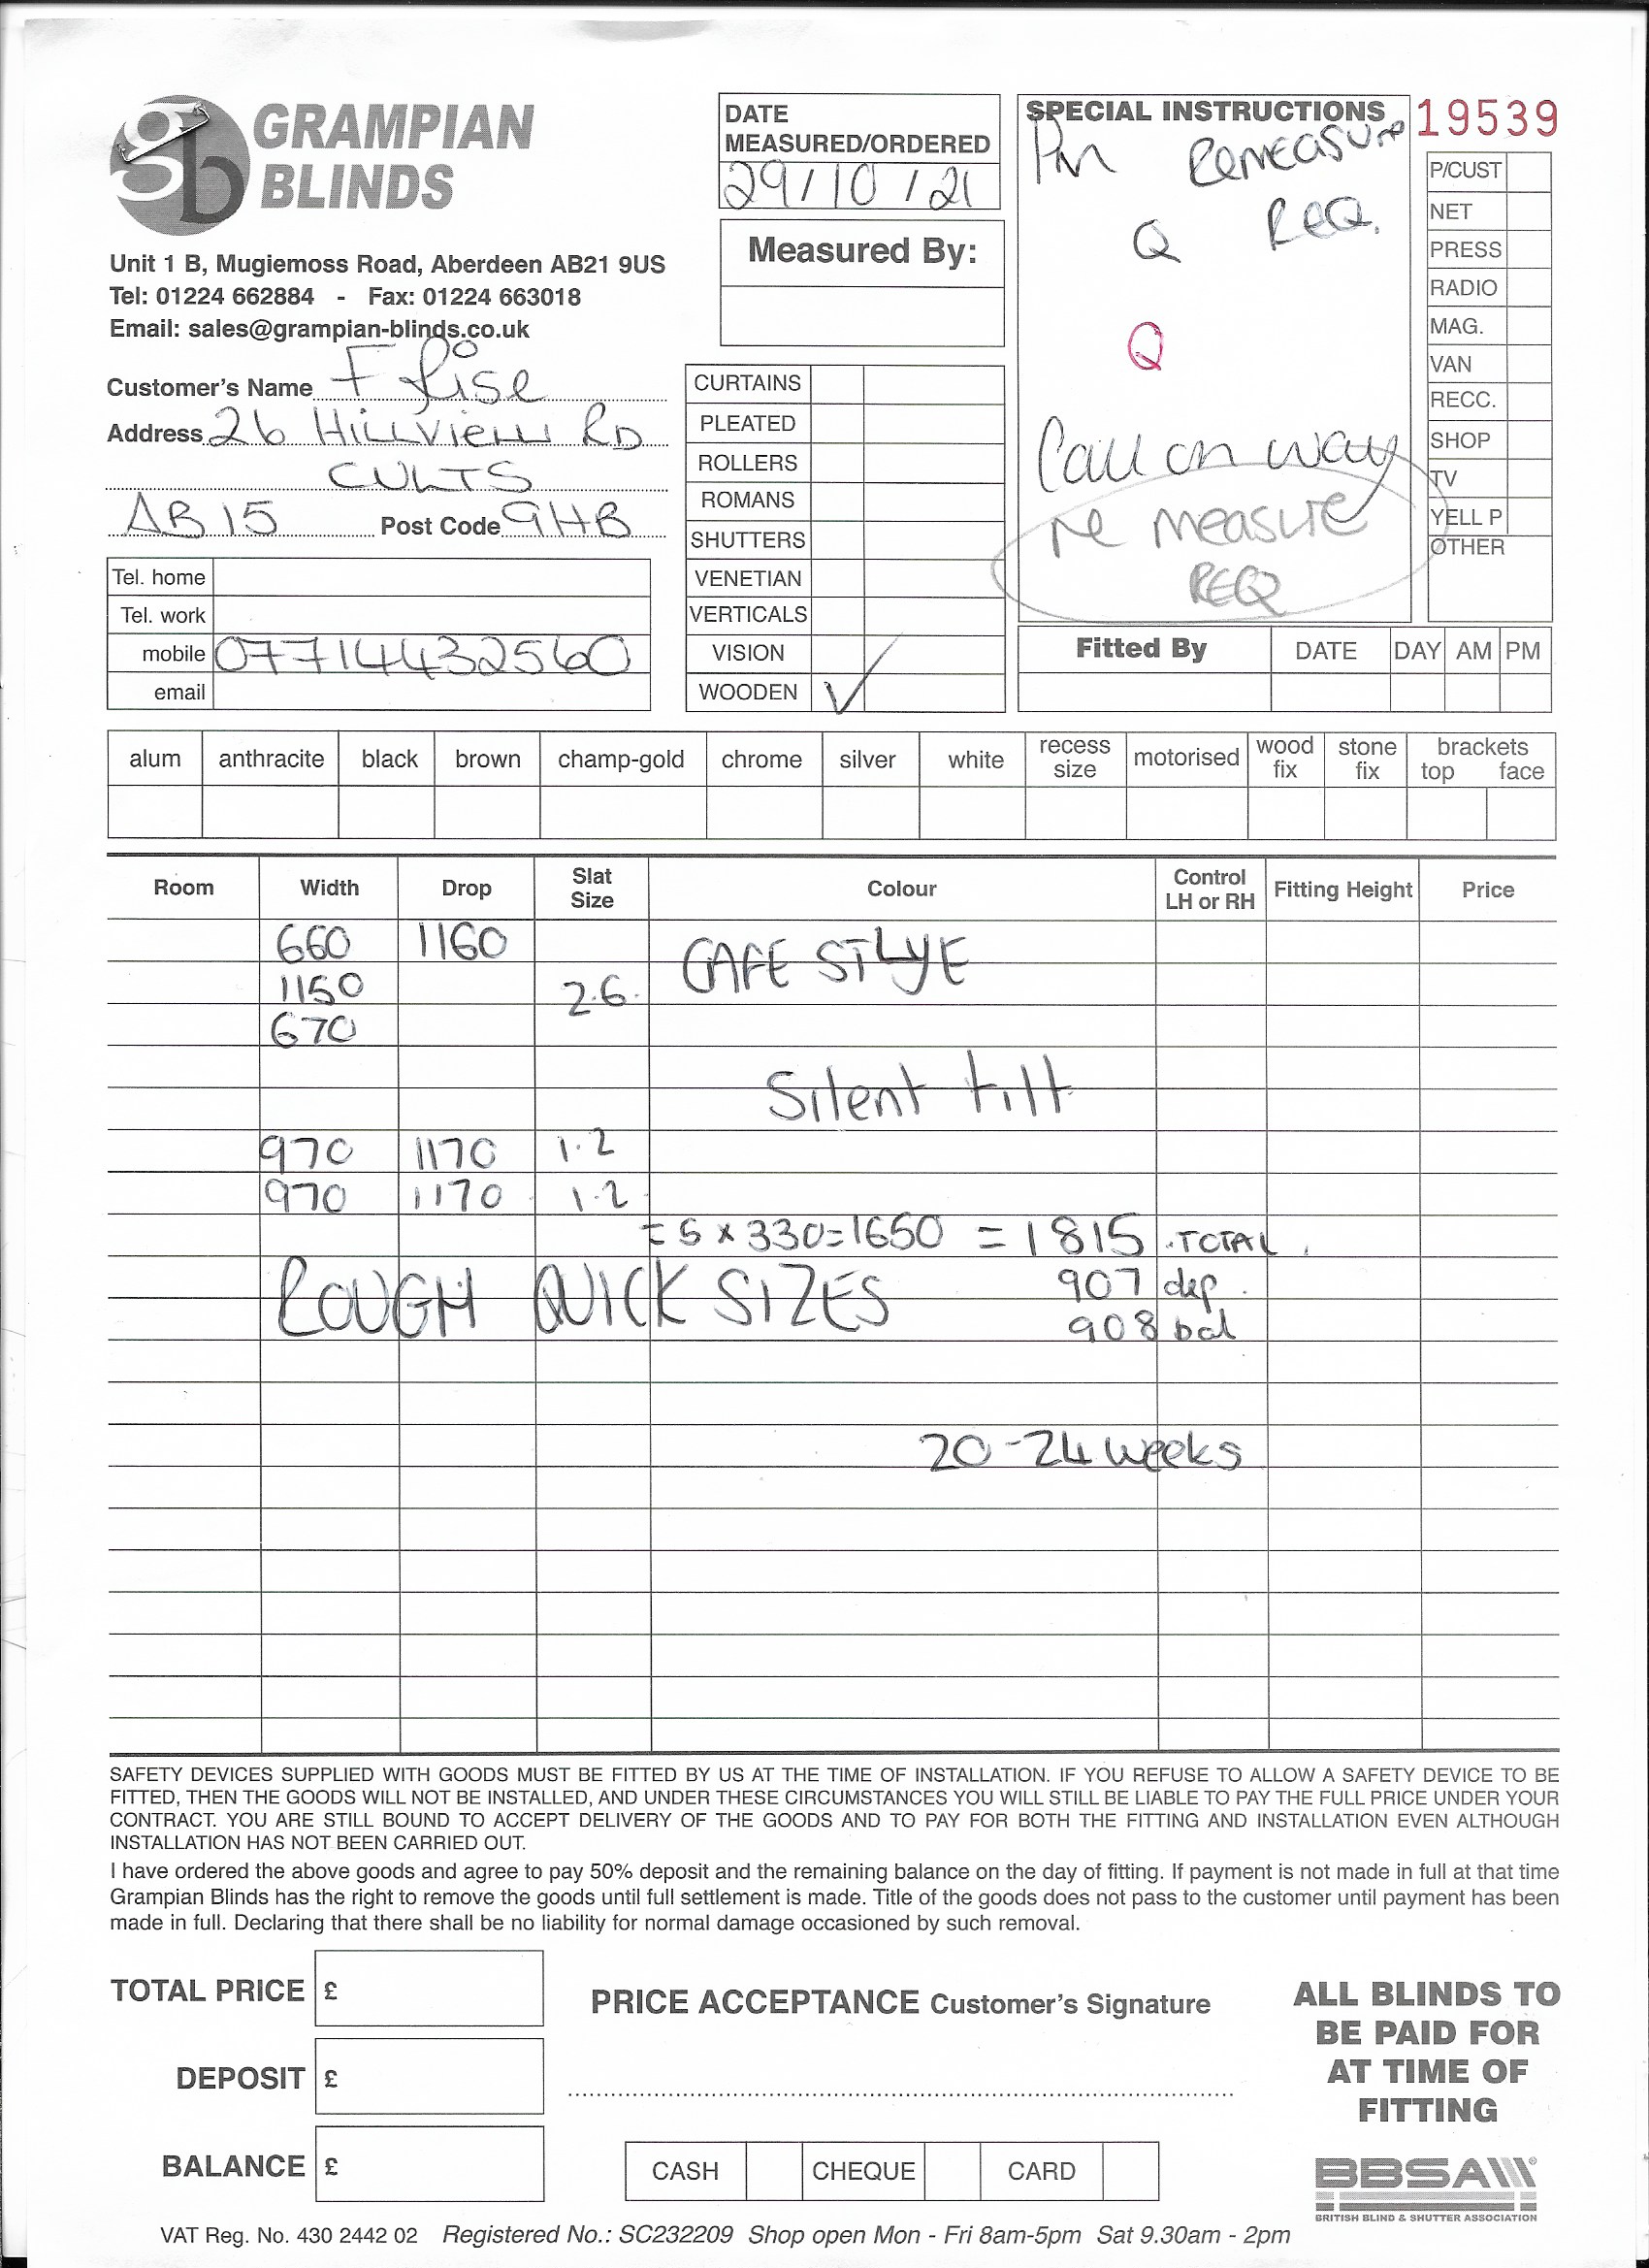 GRAMPIAN
BLINDS
Unit 1 B, Mugiemoss Road, Aberdeen AB21 9US
Tel: 01224 662884 - Fax: 01224 663018
Email: sales@grampian-blinds.co.uk
Customer's Name F Lise
Address 26 Hillview RD
CULTS
AB15 Post Code 9HB
Tel. home
Tel. work
mobile 07714432560
email
DATE
MEASURED/ORDERED
29/10/21
Measured By:
CURTAINS
PLEATED
ROLLERS
ROMANS
SHUTTERS
VENETIAN
VERTICALS
VISION
WOODEN ✓
SPECIAL INSTRUCTIONS
Pm Remeasure
Q REQ.
Q
Call on way
re measure
REQ
19539
P/CUST
NET
PRESS
RADIO
MAG.
VAN
RECC.
SHOP
TV
YELL P
OTHER
Fitted By DATE DAY AM PM
alum anthracite black brown champ-gold chrome silver white recess size motorised wood fix stone fix brackets top face
Room Width Drop Slat Size Colour Control LH or RH Fitting Height Price
660 1160 CAFE STLYE
1150 2.6.
670
Silent tilt
970 1170 1.2
970 1170 1.2
= 5 x 330=1650 = 1815 .TOTAL.
ROUGH QUICK SIZES 907 dep.
908 bal
20-24 weeks
SAFETY DEVICES SUPPLIED WITH GOODS MUST BE FITTED BY US AT THE TIME OF INSTALLATION. IF YOU REFUSE TO ALLOW A SAFETY DEVICE TO BE
FITTED, THEN THE GOODS WILL NOT BE INSTALLED, AND UNDER THESE CIRCUMSTANCES YOU WILL STILL BE LIABLE TO PAY THE FULL PRICE UNDER YOUR
CONTRACT. YOU ARE STILL BOUND TO ACCEPT DELIVERY OF THE GOODS AND TO PAY FOR BOTH THE FITTING AND INSTALLATION EVEN ALTHOUGH
INSTALLATION HAS NOT BEEN CARRIED OUT.
I have ordered the above goods and agree to pay 50% deposit and the remaining balance on the day of fitting. If payment is not made in full at that time
Grampian Blinds has the right to remove the goods until full settlement is made. Title of the goods does not pass to the customer until payment has been
made in full. Declaring that there shall be no liability for normal damage occasioned by such removal.
TOTAL PRICE £
DEPOSIT £
BALANCE £
PRICE ACCEPTANCE Customer's Signature
CASH CHEQUE CARD
ALL BLINDS TO
BE PAID FOR
AT TIME OF
FITTING
BBSA
BRITISH BLIND & SHUTTER ASSOCIATION
VAT Reg. No. 430 2442 02 Registered No.: SC232209 Shop open Mon - Fri 8am-5pm Sat 9.30am - 2pm